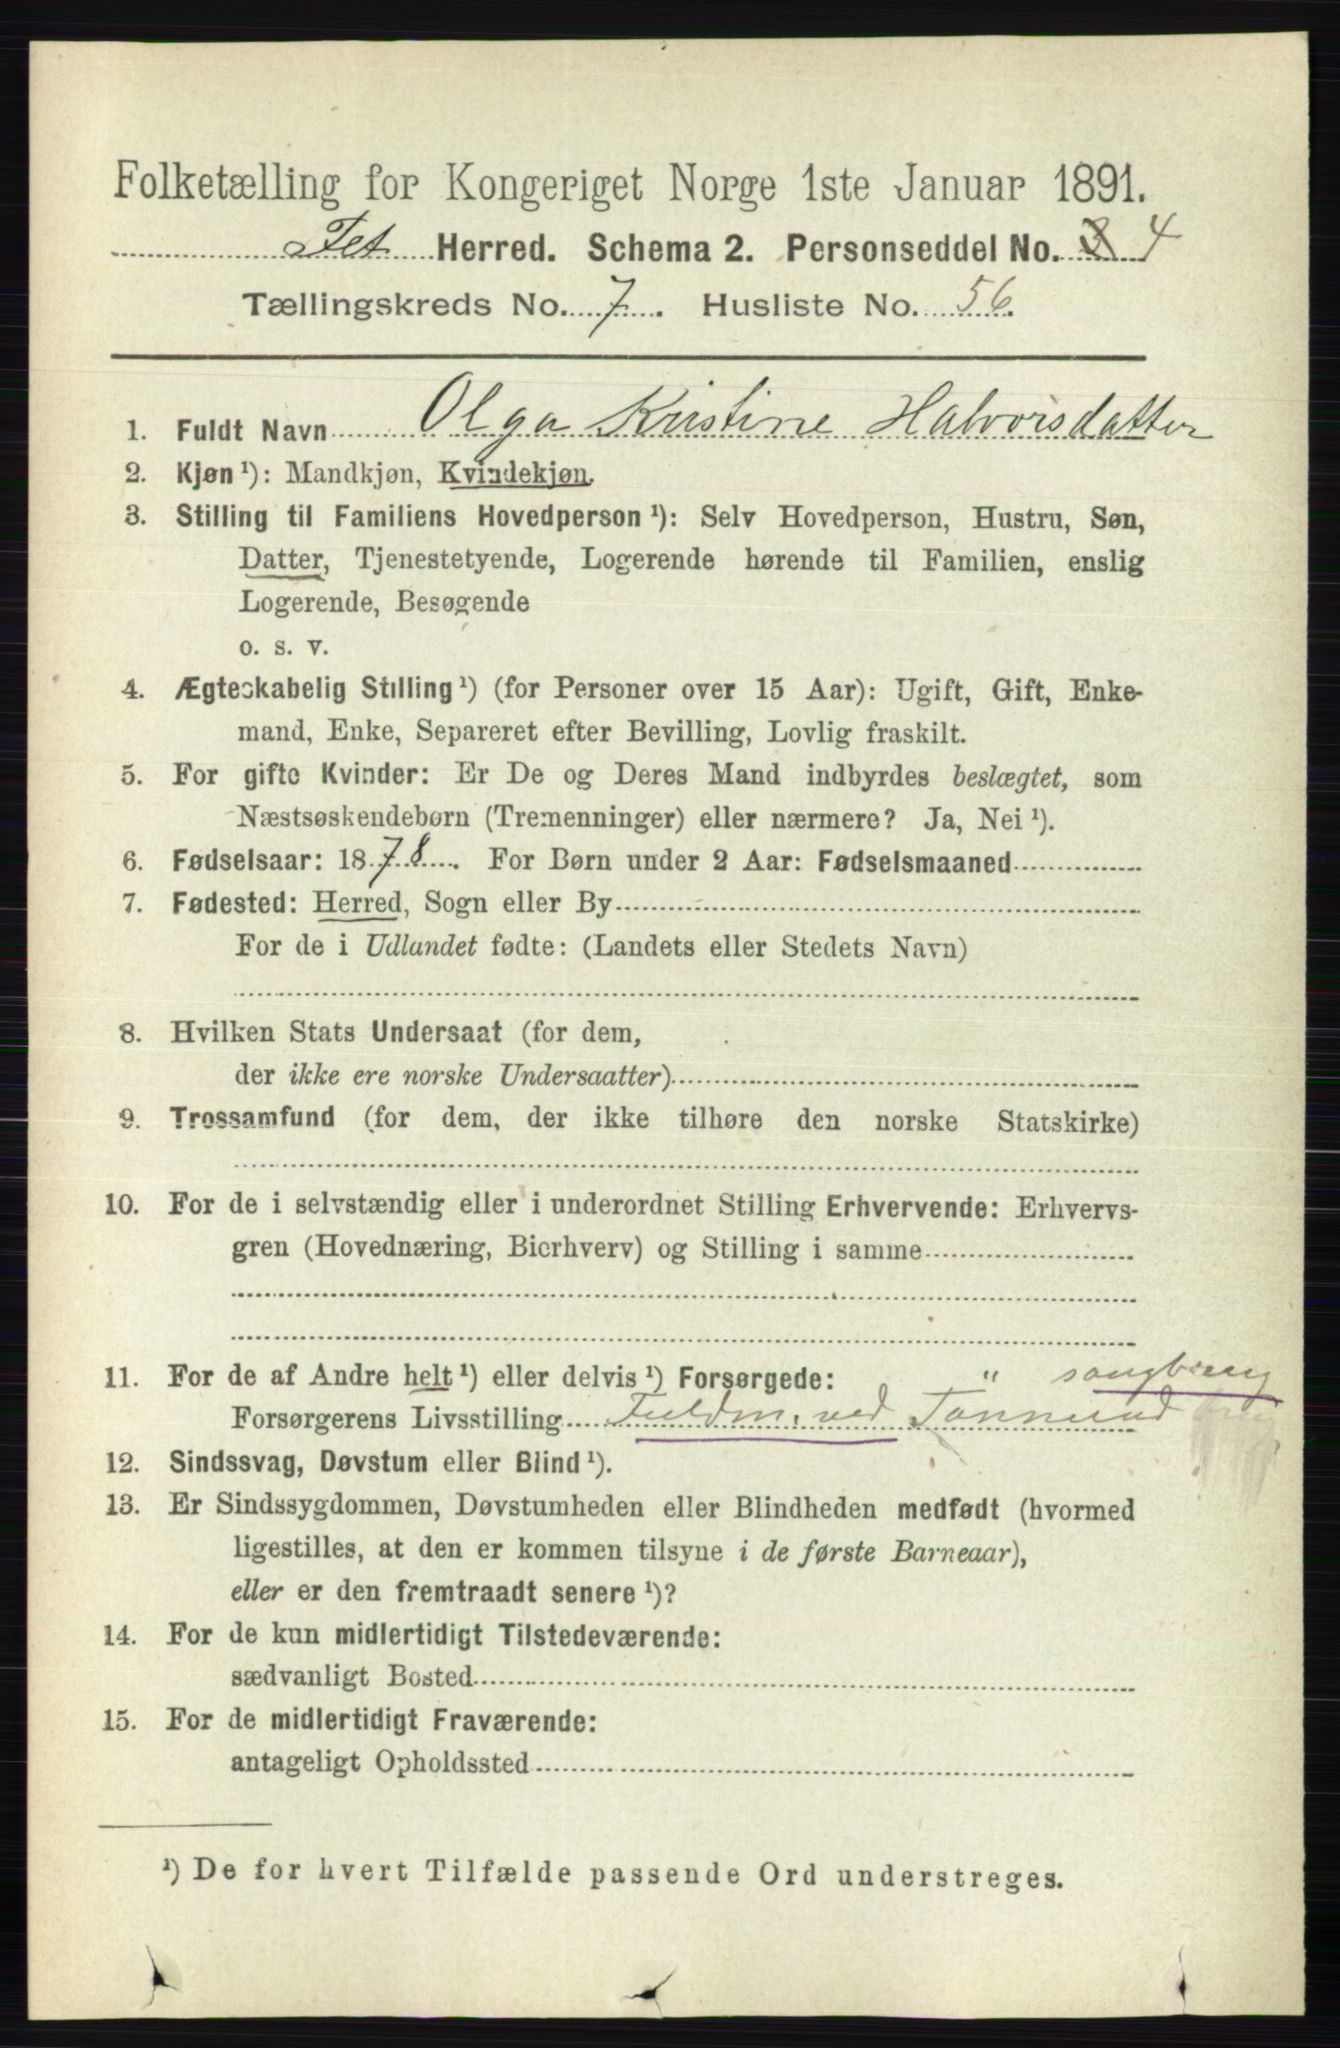 Folketælling for Kongeriget Norge 1ste Januar 1891.
Fet Herred. Schema 2. Personseddel No. 3 4
Tællingskreds No. 7. Husliste No. 56.
1. Fuldt Navn Olga Kristine Halvorsdatter
2. Kjøn¹): Mandkjøn, Kvindekjøn.
3. Stilling til Familiens Hovedperson¹): Selv Hovedperson, Hustru, Søn,
Datter, Tjenestetyende, Logerende hørende til Familien, enslig
Logerende, Besøgende
o. s. v.
4. Ægteskabelig Stilling¹) (for Personer over 15 Aar): Ugift, Gift, Enke-
mand, Enke, Separeret efter Bevilling, Lovlig fraskilt.
5. For gifte Kvinder: Er De og Deres Mand indbyrdes beslægtet, som
Næstsøskendebørn (Tremenninger) eller nærmere? Ja, Nei¹).
6. Fødselsaar: 1878. For Børn under 2 Aar: Fødselsmaaned
7. Fødested: Herred, Sogn eller By
For de i Udlandet fødte: (Landets eller Stedets Navn)
8. Hvilken Stats Undersaat (for dem,
der ikke ere norske Undersaatter)
9. Trossamfund (for dem, der ikke tilhøre den norske Statskirke)
10. For de i selvstændig eller i underordnet Stilling Erhvervende: Erhvervs-
gren (Hovednæring, Bierhverv) og Stilling i samme
11. For de af Andre helt¹) eller delvis¹) Forsørgede: "
Forsørgerens Livsstilling Fuldm. ved
12. Sindssvag, Døvstum eller Blind¹).
13. Er Sindssygdommen, Døvstumheden eller Blindheden medfødt (hvormed
ligestilles, at den er kommen tilsyne i de første Barneaar),
eller er den fremtraadt senere¹)?
14. For de kun midlertidigt Tilstedeværende:
sædvanligt Bosted
15. For de midlertidigt Fraværende:
antageligt Opholdssted
¹) De for hvert Tilfælde passende Ord understreges.